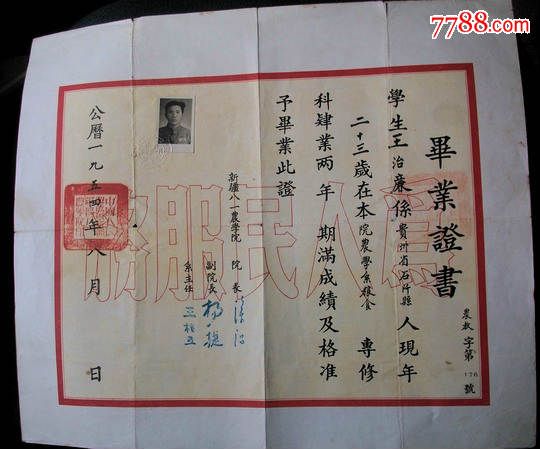 7788.com
畢業證書
農教字第176號
學生王治廉係貴州省石阡縣人現年
二十三歲在本院農學系糧食專修
科肄業两年期滿成績及格准
予畢業此證
新疆八一農學院
院長
副院長
系主任
公曆一九五四年八月 日
為人民服務